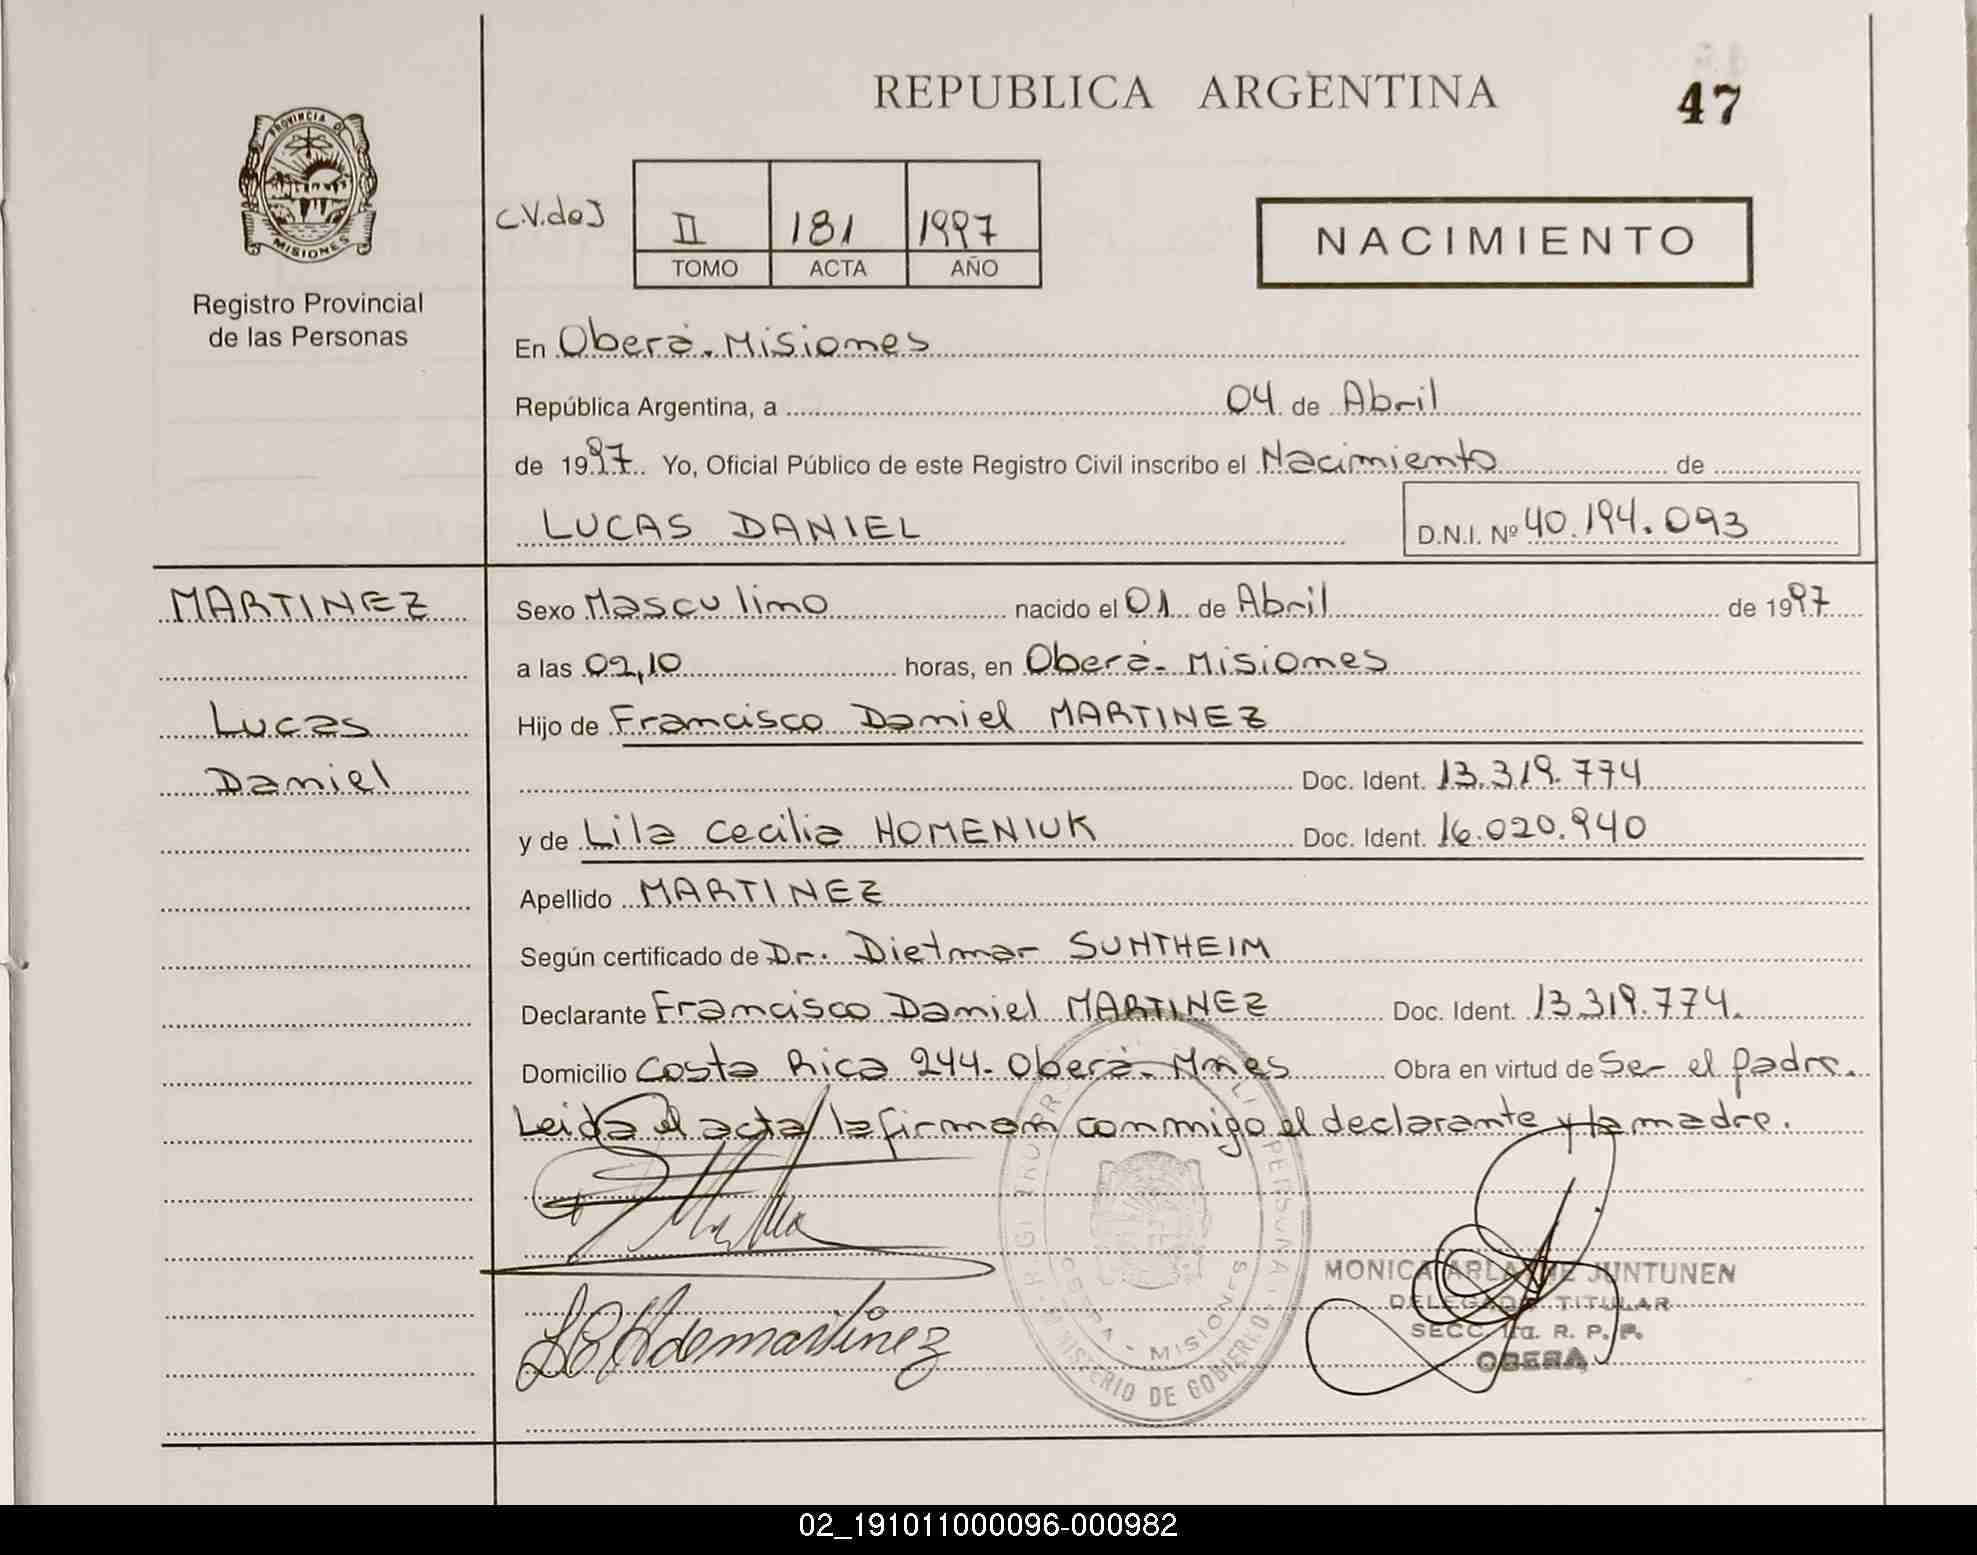 REPUBLICA ARGENTINA
47
PROVINCIA DE
MISIONES
Registro Provincial
de las Personas
C.V.deJ
II 181 1997
TOMO ACTA AÑO
NACIMIENTO
En Oberá. Misiones
República Argentina, a 04 de Abril
de 1997 Yo, Oficial Público de este Registro Civil inscribo el Nacimiento de
LUCAS DANIEL D.N.I. Nº 40.194.093
MARTINEZ
Lucas
Daniel
Sexo Masculino nacido el 01 de Abril de 1997
a las 02,10 horas, en Oberá- Misiones
Hijo de Francisco Daniel MARTINEZ
Doc. Ident. 13.319.774
y de Lila Cecilia HOMENIUK Doc. Ident. 16.020.940
Apellido MARTINEZ
Según certificado de Dr. Dietmar SUNTHEIM
Declarante Francisco Daniel MARTINEZ Doc. Ident. 13.319.774.
Domicilio Costa Rica 244- Oberá- Mnes Obra en virtud de Ser el padre.
Leida el acta la firman conmigo el declarante y la madre.
de martinez
MINISTERIO DE GOBIERNO
OBERA - MISIONES
MONICA JUNTUNEN
DELEGADO TITULAR
SECC. 1ra. R. P. P.
OBERA
02_191011000096-000982